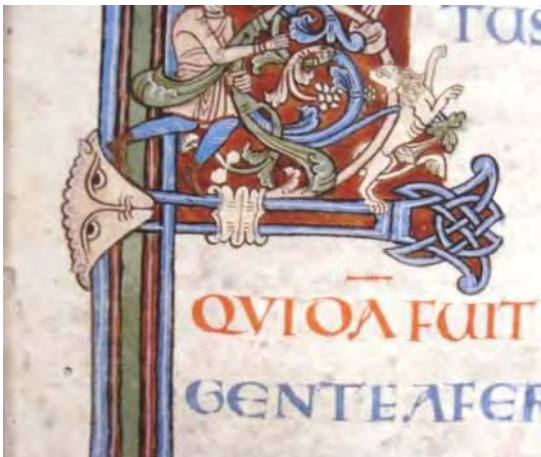 TUS
QVIDĀ FUIT
GENTE AFER